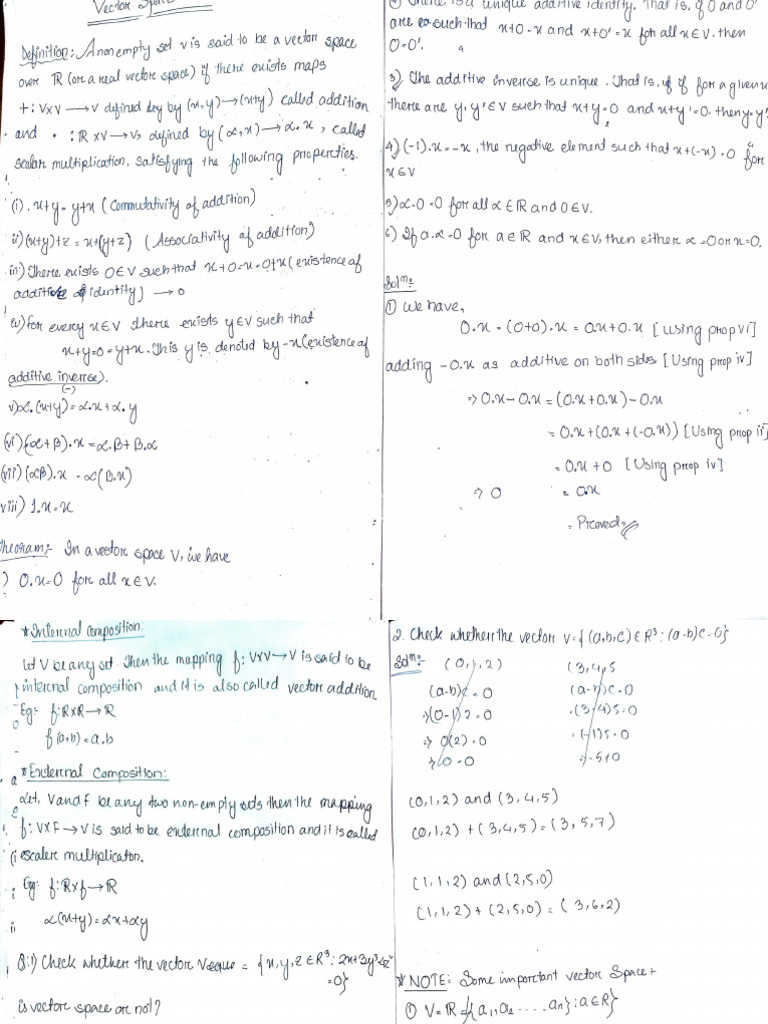 Vector Space
Definition: A nonempty set v is said to be a vector space
over ℝ (or a real vector space) if there exists maps
+: V×V ⟶ V defined by by (x, y) → (x+y) called addition
and • : ℝ×V → V, defined by (α, x) → α.x, called
scalar multiplication, satisfying the following properties.
(i) . x+y = y+x ( Commutativity of addition)
ii) (x+y)+z = x+(y+z) (Associativity of addition)
iii) There exists 0∈V such that x+0=x=0+x (existence of
additive of identity) → 0
iv) for every x∈V there exists y∈V such that
x+y=0=y+x. This y is denoted by -x (existence of
additive inverse).
(-)
v) α.(x+y) = α.x+α.y
(vi) (α+β).x = α.β+β.α
(vii) (αβ).x = α(β.x)
viii) 1.x=x
Theoram:- In a vector space V, we have
) 0.x=0 for all x∈V.
There is a unique additive identity. That is, if 0 and 0'
are such that x+0=x and x+0'=x for all x∈V, then
0=0'.
3) The additive inverse is unique. That is, if if for a given x
there are y, y'∈V such that x+y=0 and x+y'=0, then y=y'
4) (-1).x=-x, the negative element such that x+(-x)=0 for
x∈V
5) α.0=0 for all α∈ℝ and 0∈V.
6) If α.x=0 for α∈ℝ and x∈V, then either α=0 or x=0.
Solⁿ:
① We have,
0.x = (0+0).x = 0.x+0.x [Using prop vi]
adding -0.x as additive on both sides [Using prop iv]
⇒ 0.x-0.x = (0.x+0.x)-0.x
= 0.x+(0.x+(-0.x)) [Using prop ii]
= 0.x+0 [Using prop iv]
⇒ 0 = 0x
= Proved
*Internal Composition:
Let V be any set. Then the mapping f: V×V→V is said to be
internal composition and it is also called vector addition
Eg:- f: ℝ×ℝ→ℝ
f(a,b)=a.b
*External Composition:
Let, V and F be any two non-empty sets then the mapping
f: V×F→V is said to be external composition and it is called
scaler multiplicaton.
Eg:- f: ℝ×f→ℝ
α(x+y)=αx+αy
Q:1) Check whether the vector = {x, y, z∈ℝ³: 2x+3y³-4z²
=0}
is vector space or not?
2. Check whether the vector V={(a,b,c)∈R³: (a-b)c=0}
Solⁿ:- (0,1,2) (3,4,5
(a-b)c=0 (a-b)c=0
⇒(0-1)2=0 =(3-4)5=0
⇒ 0(2)=0 =(-1)5=0
⇒ 0=0 ⇒-5≠0
(0,1,2) and (3,4,5)
(0,1,2)+(3,4,5)=(3,5,7)
(1,1,2) and (2,5,0)
(1,1,2)+(2,5,0)=(3,6,2)
*NOTE: Some important vector Space:
① V=ℝⁿ={(a₁,a₂ .... aₙ}:a∈R}